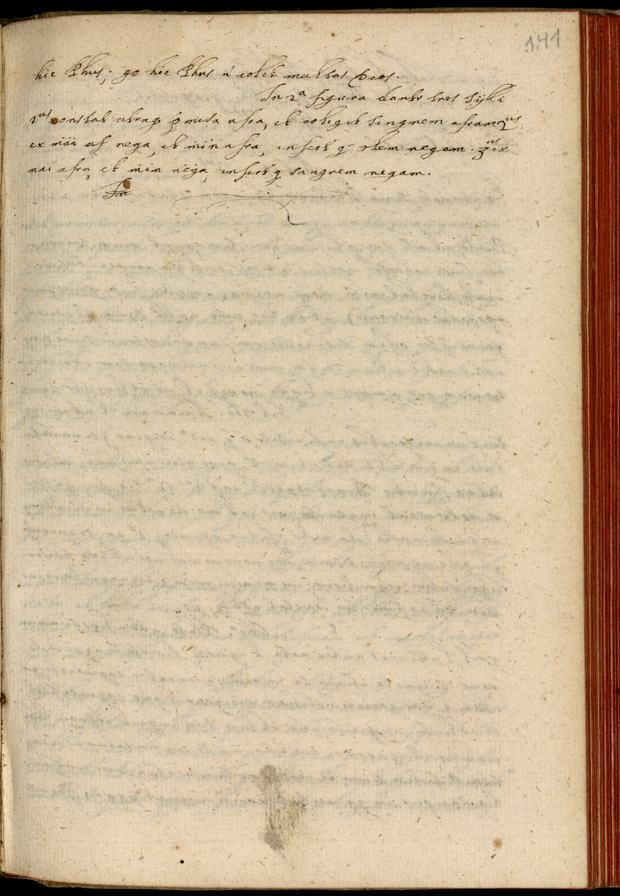 141
hic Phus; go hic Phus n colit multos Deos.
In 2a figura dantr tres Sylli
1us constat utraq pmissa afra, et colligit singnem afram 2us
ex maii af nega, et min afra, infert q rlem negam. 3us ex
maii afra, et min nega, infert q sangnem negam.